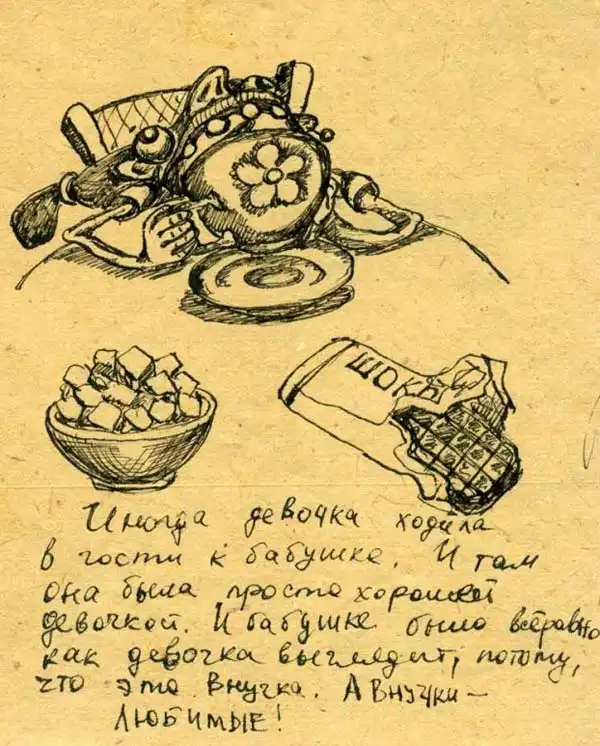 ШОКО
Иногда девочка ходила
в гости к бабушке. И там
она была просто хорошей
девочкой. И бабушке было всёравно
как девочка выглядит, потому,
что это внучка. А внучки —
ЛЮБИМЫЕ!